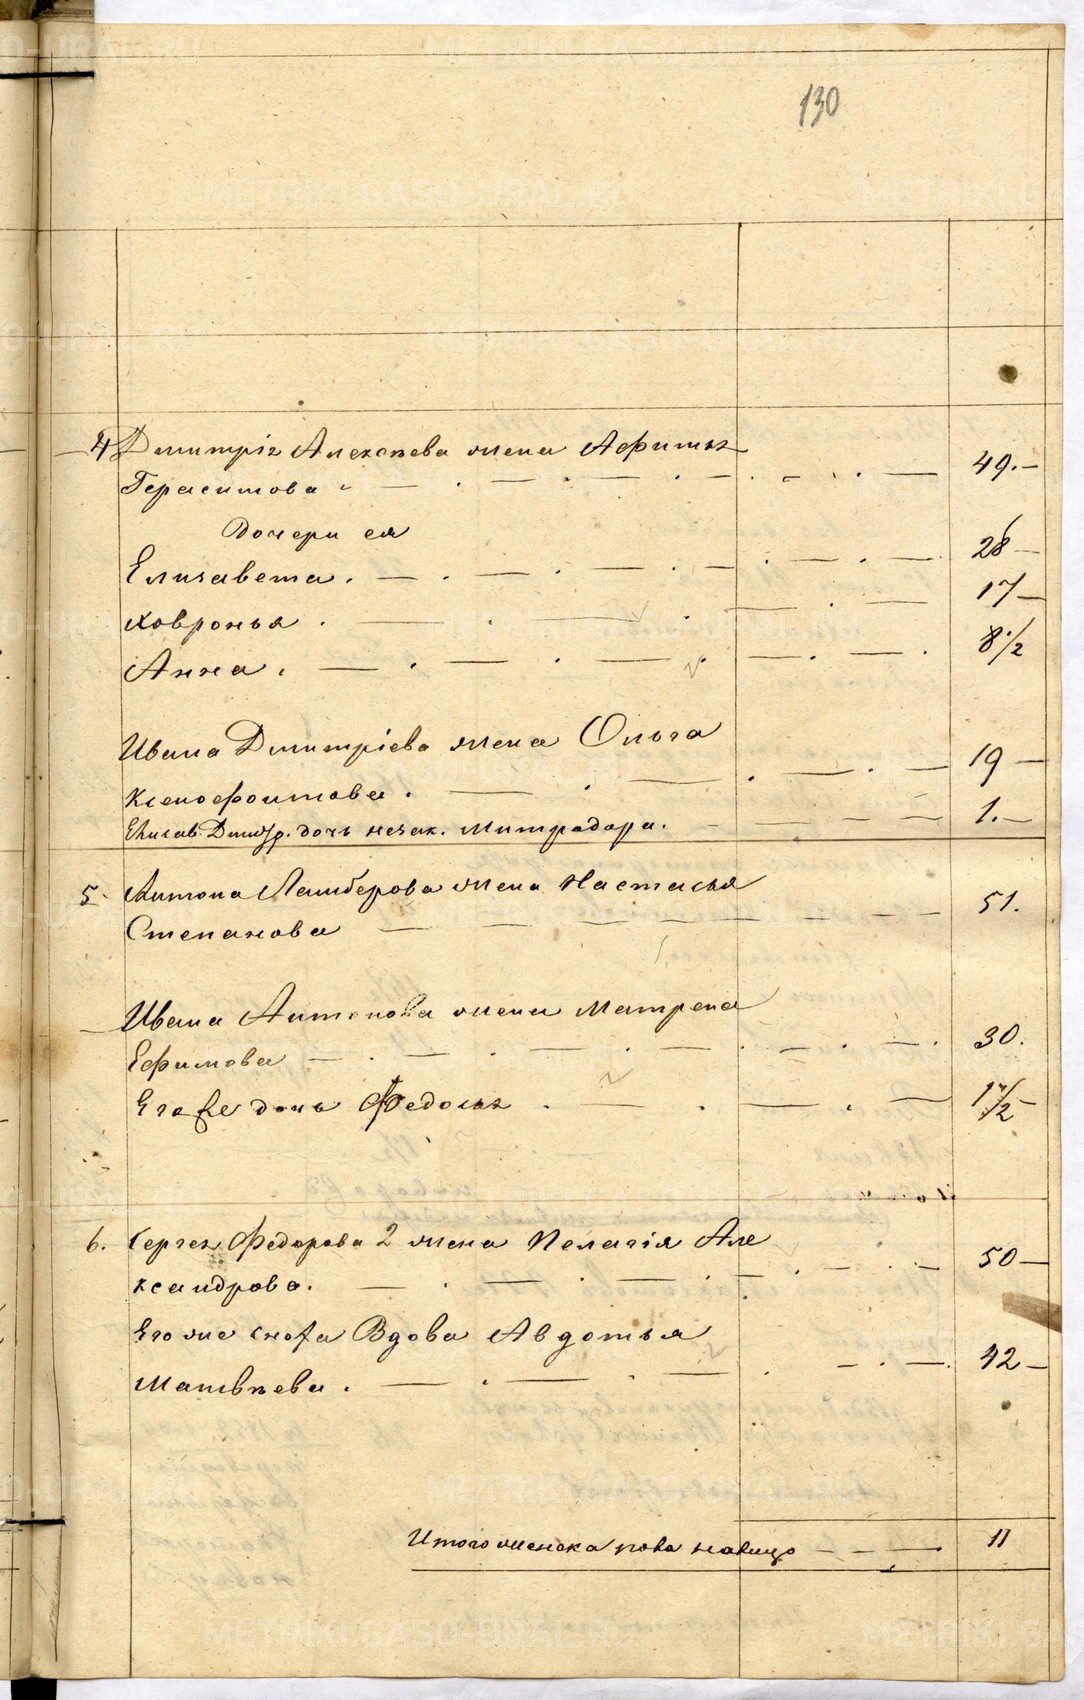 130
4 Дмитрія Алексѣева жена Афимья
Герасимова 49.
Дочери ея
Елизавета. 28
Ховронья 17
Анна. 8 1/2
Ивана Дмитріева жена Ольга
Ксенофонтова. 19
Елисав. Дмитр. дочь незак. Митродора. 1.
5 Антона Ламберова жена Настасья
Степанова 51.
Ивана Антонова жена Матрена
Ефимова 30.
Его же дочь Федосья 1/2
6. Сергея Федорова 2 жена Пелагія Але
ксандрова. 50
Его же сноха Вдова Авдотья
Матвѣева. 42
Итого женска пола налицо 11